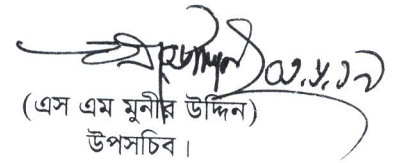 ৩.৫.১৭
(এস এম মুনীর উদ্দিন)
উপসচিব।